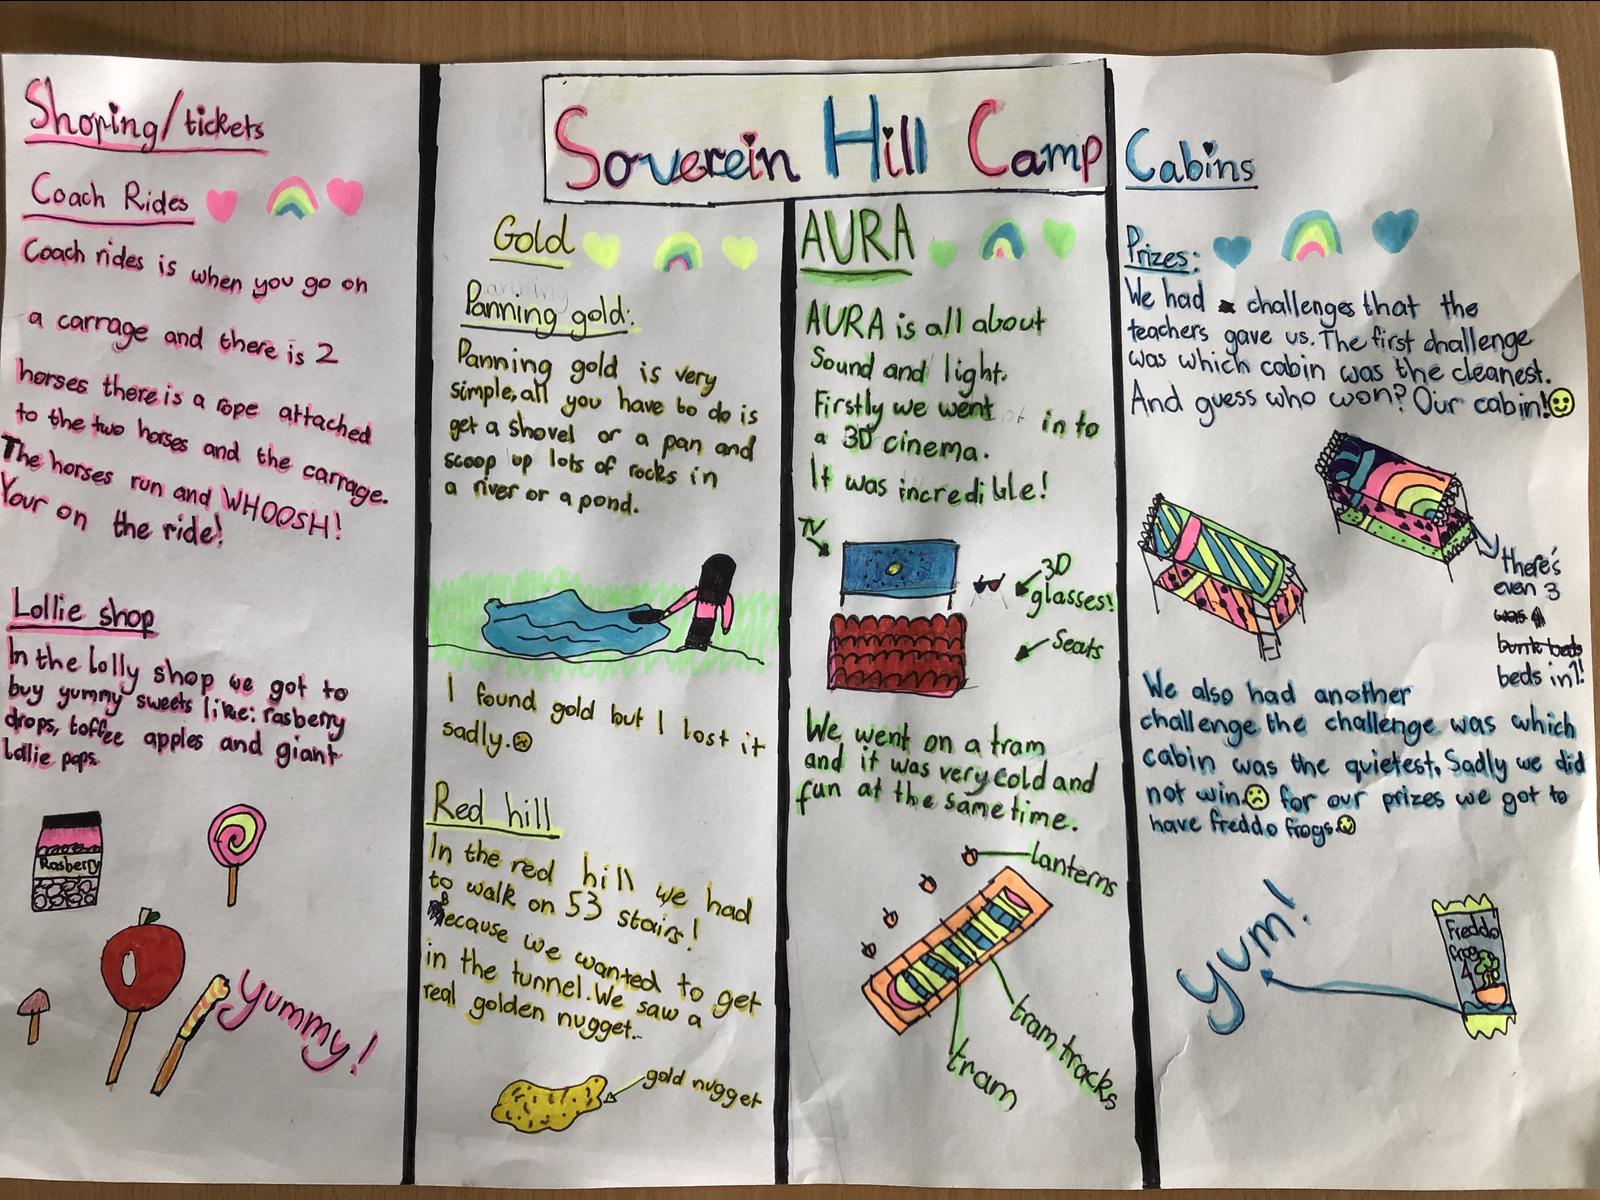 Soverein Hill Camp
Shoping/tickets
Coach Rides
Coach rides is when you go on
a carrage and there is 2
horses there is a rope attached
to the two horses and the carrage.
The horses run and WHOOSH!
Your on the ride!
Lollie shop
In the lolly shop we got to
buy yummy sweets like: rasberry
drops, toffee apples and giant
lollie pops.
Rasberry
Yummy!
Gold
Panning gold:
Panning gold is very
simple, all you have to do is
get a shovel or a pan and
scoop up lots of rocks in
a river or a pond.
I found gold but I lost it
sadly.
Red hill
In the red hill we had
to walk on 53 stairs!
Because we wanted to get
in the tunnel. We saw a
real golden nugget..
gold nugget
AURA
AURA is all about
Sound and light.
Firstly we went in to
a 3D cinema.
It was incredible!
TV
3D
glasses!
Seats
We went on a tram
and it was very cold and
fun at the same time.
lanterns
tram tracks
tram
Cabins
Prizes:
We had challenges that the
teachers gave us. The first challenge
was which cabin was the cleanest.
And guess who won? Our cabin!
there's
even 3
bunk beds
beds in 1!
We also had another
challenge the challenge was which
cabin was the quietest. Sadly we did
not win. for our prizes we got to
have freddo frogs.
Yum!
Freddo
frog